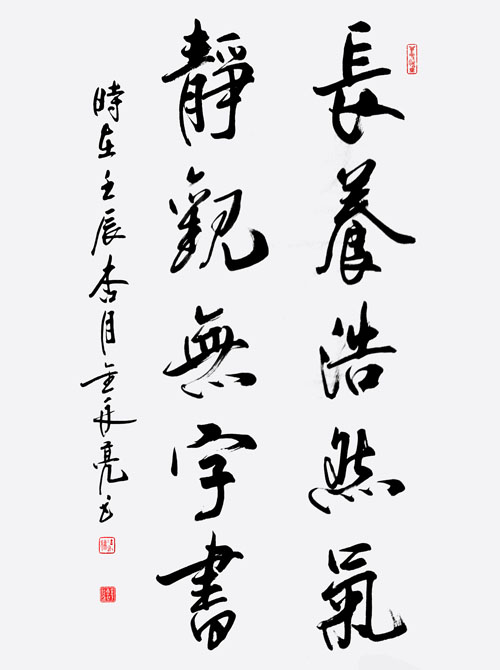 長養浩然氣
靜觀無字書
時在壬辰杏月金永亮书